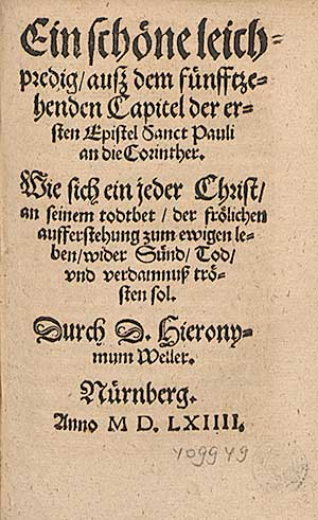 Ein schöne leich-
predig/ auß dem fünfftze-
henden Capitel der er-
sten Epistel Sanct Pauli
an die Corinther.
Wie sich ein jeder Christ/
an seinem todtbet / der frölichen
aufferstehung zum ewigen le-
ben/ wider Sünd/ Tod/
vnd verdamnuß trö-
sten sol.
Durch D. Hierony-
mum Weller.
Nürnberg.
Anno M D. LXIIII.
109949